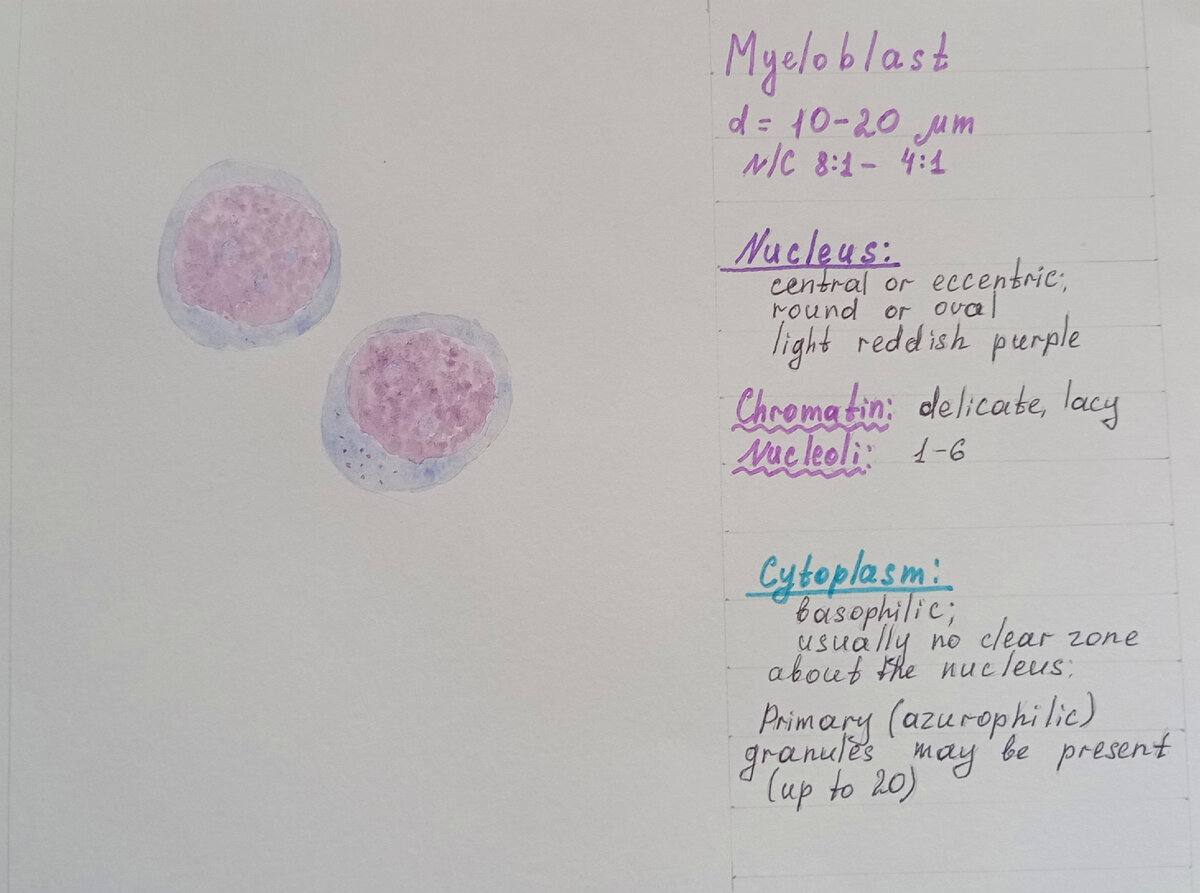 Myeloblast
d = 10-20 µm
N/C 8:1 - 4:1
Nucleus:
central or eccentric;
round or oval
light reddish purple
Chromatin: delicate, lacy
Nucleoli: 1-6
Cytoplasm:
basophilic;
usually no clear zone
about the nucleus:
Primary (azurophilic)
granules may be present
(up to 20)